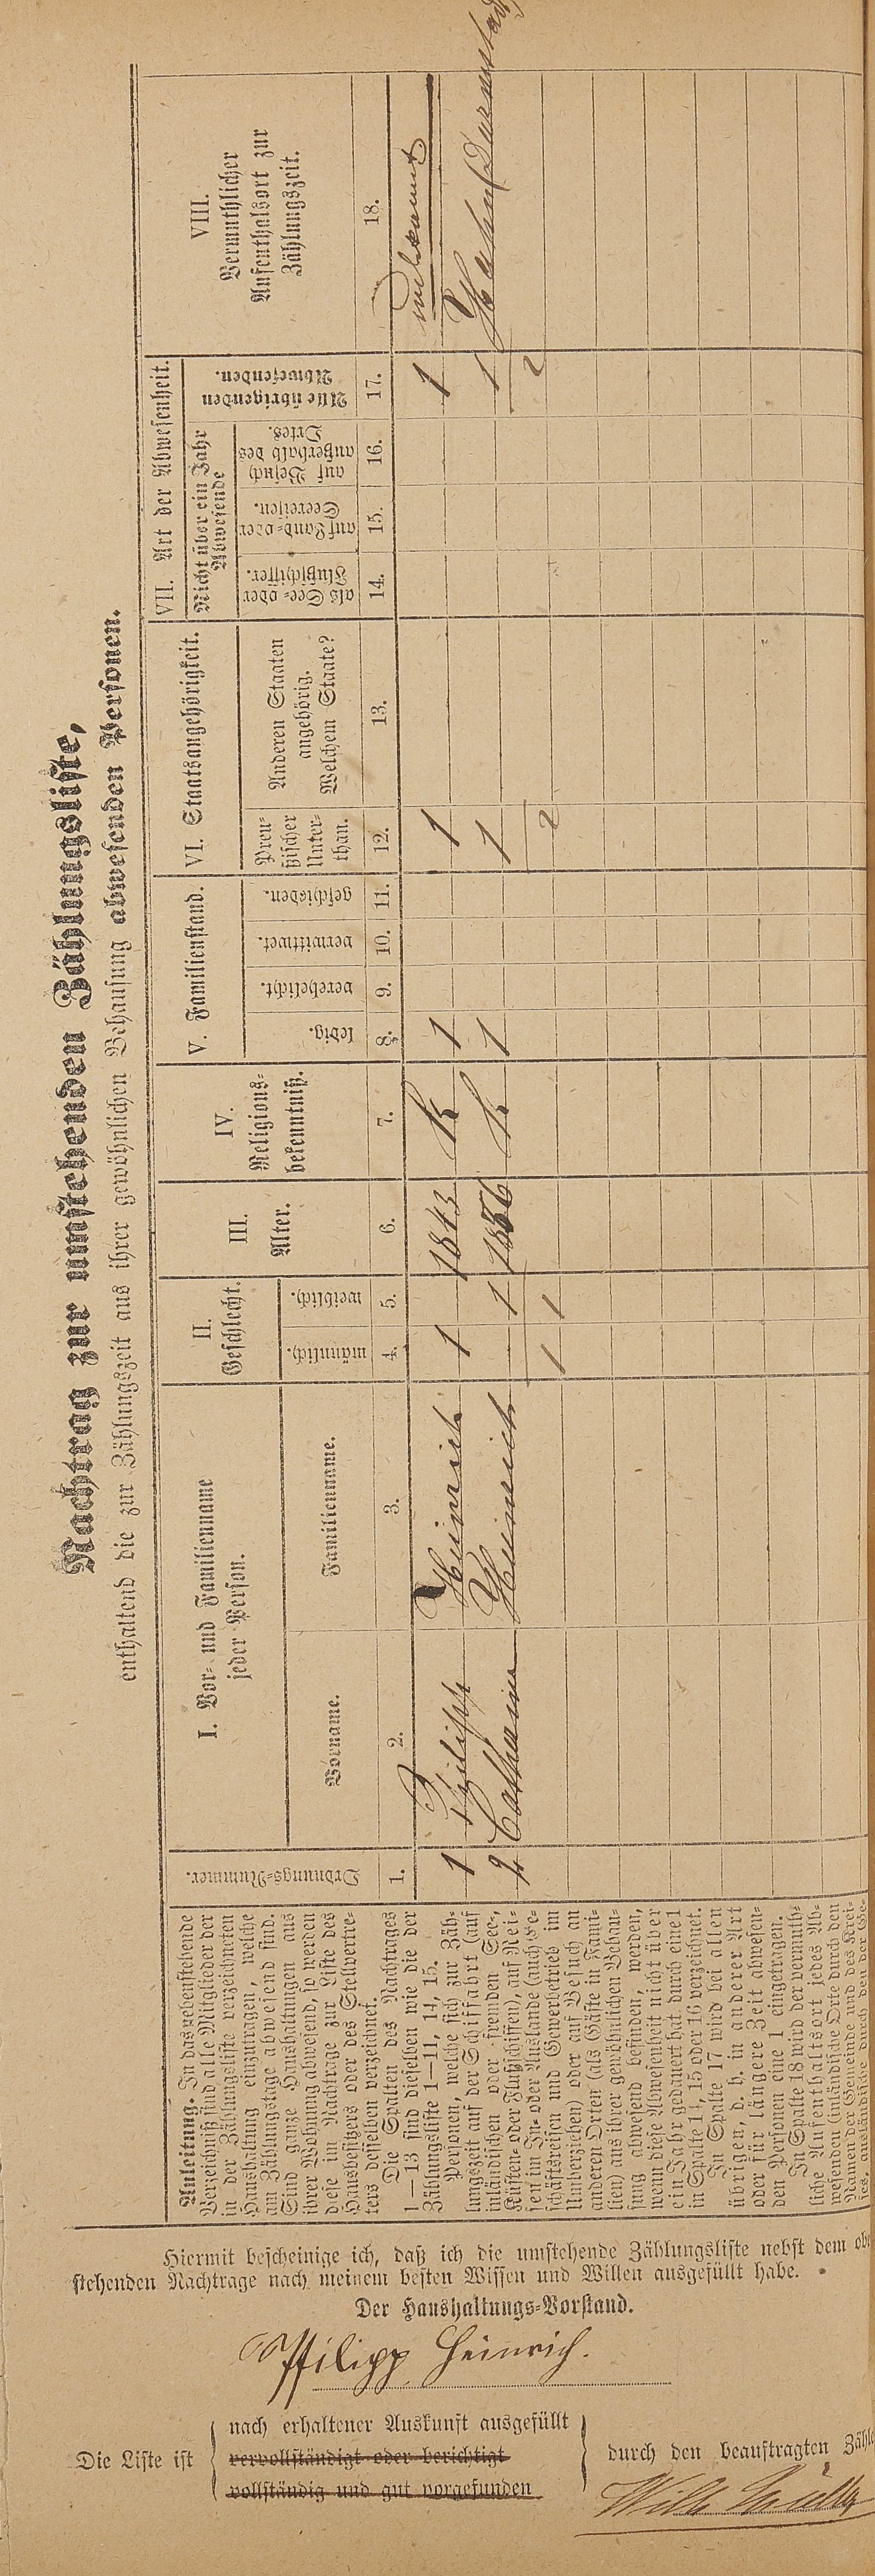 Nachtrag zur umstehenden Zählungsliste,
enthaltend die zur Zählungszeit aus ihrer gewöhnlichen Behausung abwesenden Personen.
Anleitung. In das nebenstehende
Verzeichniß sind alle Mitglieder der
in der Zählungsliste verzeichneten
Haushaltung einzutragen, welche
am Zählungstage abwesend sind.
Sind ganze Haushaltungen aus
ihrer Wohnung abwesend, so werden
diese im Nachtrage zur Liste des
Hausbesitzers oder des Stellvertre-
ters desselben verzeichnet.
Die Spalten des Nachtrages
1—13 sind dieselben wie die der
Zählungsliste 1—11, 14, 15.
Personen, welche sich zur Zäh-
lungszeit auf der Schiffahrt (auf
inländischen oder fremden See-,
Küsten- oder Flußschiffen), auf Rei-
sen im In- oder Auslande (auch Ge-
schäftsreisen und Gewerbetrieb im
Umherziehen) oder auf Besuch an
anderen Orten (als Gäste in Fami-
lien) aus ihrer gewöhnlichen Behau-
sung abwesend befinden, werden,
wenn diese Abwesenheit nicht über
ein Jahr gedauert hat durch eine 1
in Spalte 14, 15 oder 16 verzeichnet.
In Spalte 17 wird bei allen
übrigen, d. h. in anderer Art
oder für längere Zeit abwesen-
den Personen eine 1 eingetragen.
In Spalte 18 wird der vermuth-
liche Aufenthaltsort jedes Ab-
wesenden (inländische Orte durch den
Namen der Gemeinde und des Krei-
ses, ausländische durch den der Ge-
Ordnungs-Nummer.
I. Vor- und Familienname
jeder Person.
Vorname.
Familienname.
II.
Geschlecht.
männlich.
weiblich.
III.
Alter.
IV.
Religions-
bekenntniß.
V. Familienstand.
ledig.
verehelicht.
verwittwet.
geschieden.
VI. Staatsangehörigkeit.
Preu-
ßischer
Unter-
than.
Anderen Staaten
angehörig.
Welchem Staate?
VII. Art der Abwesenheit.
Nicht über ein Jahr
Abwesende
als See- oder
Flußschiffer.
auf Land- oder
Seereisen.
auf Besuch
außerhalb des
Ortes.
Alle übrigen
Abwesenden.
VIII.
Vermuthlicher
Aufenthaltsort zur
Zählungszeit.
1. 2. 3. 4. 5. 6. 7. 8. 9. 10. 11. 12. 13. 14. 15. 16. 17. 18.
1 Philipp Heinrich 1 1843 K 1 1 1 unbekannt
2 Catharina Heinrich 1 1856 K 1 1 1 Hahn
1 1 2 2
Hiermit bescheinige ich, daß ich die umstehende Zählungsliste nebst dem obe
stehenden Nachtrage nach meinem besten Wissen und Willen ausgefüllt habe.
Der Haushaltungs-Vorstand.
Philipp Heinrich.
Die Liste ist
nach erhaltener Auskunft ausgefüllt
vervollständigt oder berichtigt
vollständig und gut vorgefunden
durch den beauftragten Zähle
Wilh